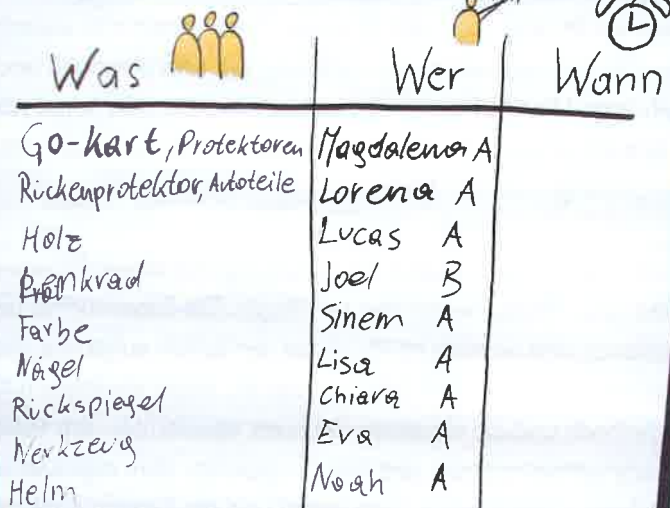 Was Wer Wann
Go-Kart, Protektoren Magdalena A
Rückenprotektor, Autoteile Lorena A
Holz Lucas A
Lenkrad Joel B
Farbe Sinem A
Nägel Lisa A
Rückspiegel Chiara A
Werkzeug Eva A
Helm Noah A